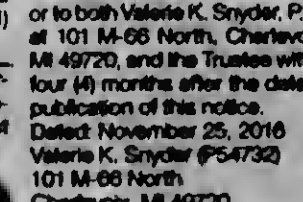 or to both Valerie K. Snyder, P
at 101 M-66 North, Charlevo
MI 49720, and the Trustee with
four (4) months after the date
publication of this notice.
Dated: November 25, 2016
Valerie K. Snyder (P54732)
101 M-66 North
Charlevoix, MI 49720